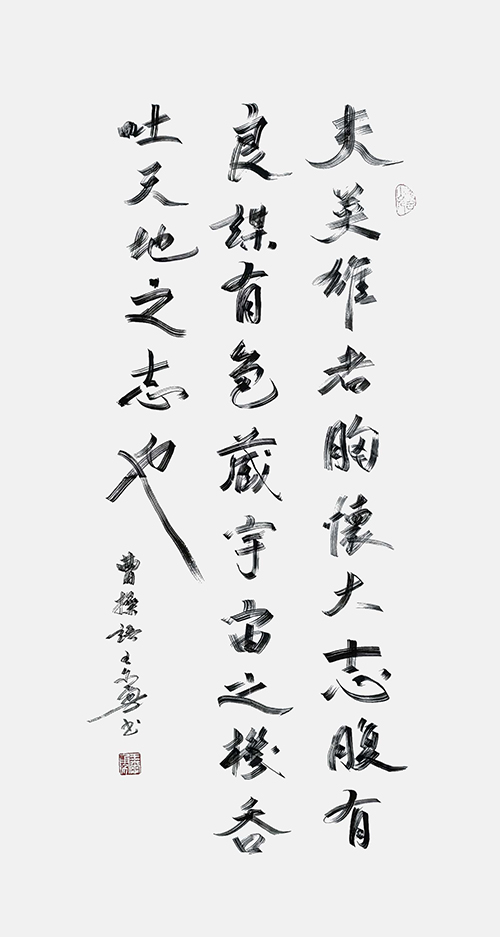 夫英雄者胸懷大志腹有
良謀有包藏宇宙之機吞
吐天地之志也
曹操語王書